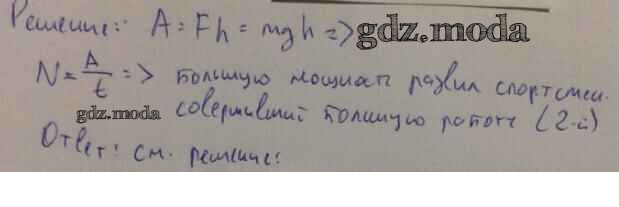 Решение: A = Fh = mgh => gdz.moda
N = A/t => большую мощность развил спортсмен.
gdz.moda совершивший большую работу (2-й)
Ответ: см. решение: